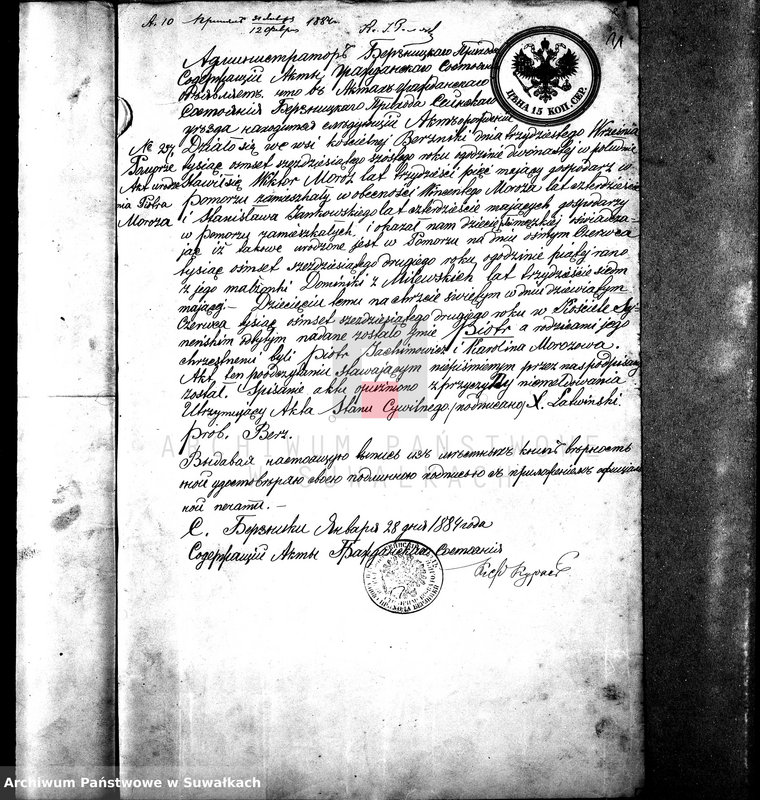 А. 10 31 Января / 12 Февр 1884
ЦѢНА 15 КОП. СЕР.
Администраторъ Бержницкаго Прихода
Содержащій Акты Гражданскаго Состоянія
объявляетъ что въ Актахъ Гражданскаго
Состоянія Бержницкаго Прихода Сейнскаго
уѣзда находится слѣдующій Актъ рожденія
№ 257
Pomorze
Akt urodze
nia Piotra
Moroza
Działo się we wsi kościelnej Berzniki dnia trzydziestego Września
tysiąc ośmset sześćdziesiątego szóstego roku o godzinie dwónastej w południe
Stawił się Wiktor Moroz lat trzydzieści pięć mający gospodarz w
Pomorzu zamieszkały w obecności Wincentego Moroza lat czterdzieście
i Stanisława Jankowskiego lat czterdzieście mających, gospodarzy
w Pomorzu zamieszkałych, i okazał nam dziecię płci męzkiej oświadcza-
jąc iż takowe urodzone jest w Pomorzu na dniu ósmym Czerwca
tysiąc ośmset sześćdziesiątego drugiego roku, o godzinie piątej rano
z jego małżonki Dominiki z Milewskich lat trzydzieście siedm
mającej. – Dziecięciu temu na chrzcie świętym w dniu dziewiątym
Czerwca tysiąc ośmset sześćdziesiątego drugiego roku w Kościele Sej-
neńskim odbytym nadane zostało imie Piotr a rodzicami jego
chrzestnemi byli Piotr Jachimowicz i Karolina Morozowa.
Akt ten po odczytaniu stawającym niepiśmiennym przez nas podpisany
został. Spisanie aktu opóźniono z przyczyny niemeldowania
Utrzymujący Akta Stanu Cywilnego (podpisano) X. Łatwiński.
prob. Berz.
Выдавая настоящую выпись изъ метскихъ книгъ вѣрность
ной удостовѣряю своею подлинною подписью съ приложеніемъ оффиціаль
ной печати. –
С. Бержники Января 28 дня 1884 года
Содержащій Акты Гражданскаго Состоянія
ARCHIWUM PAŃSTWOWE
W SUWAŁKACH
Archiwum Państwowe w Suwałkach